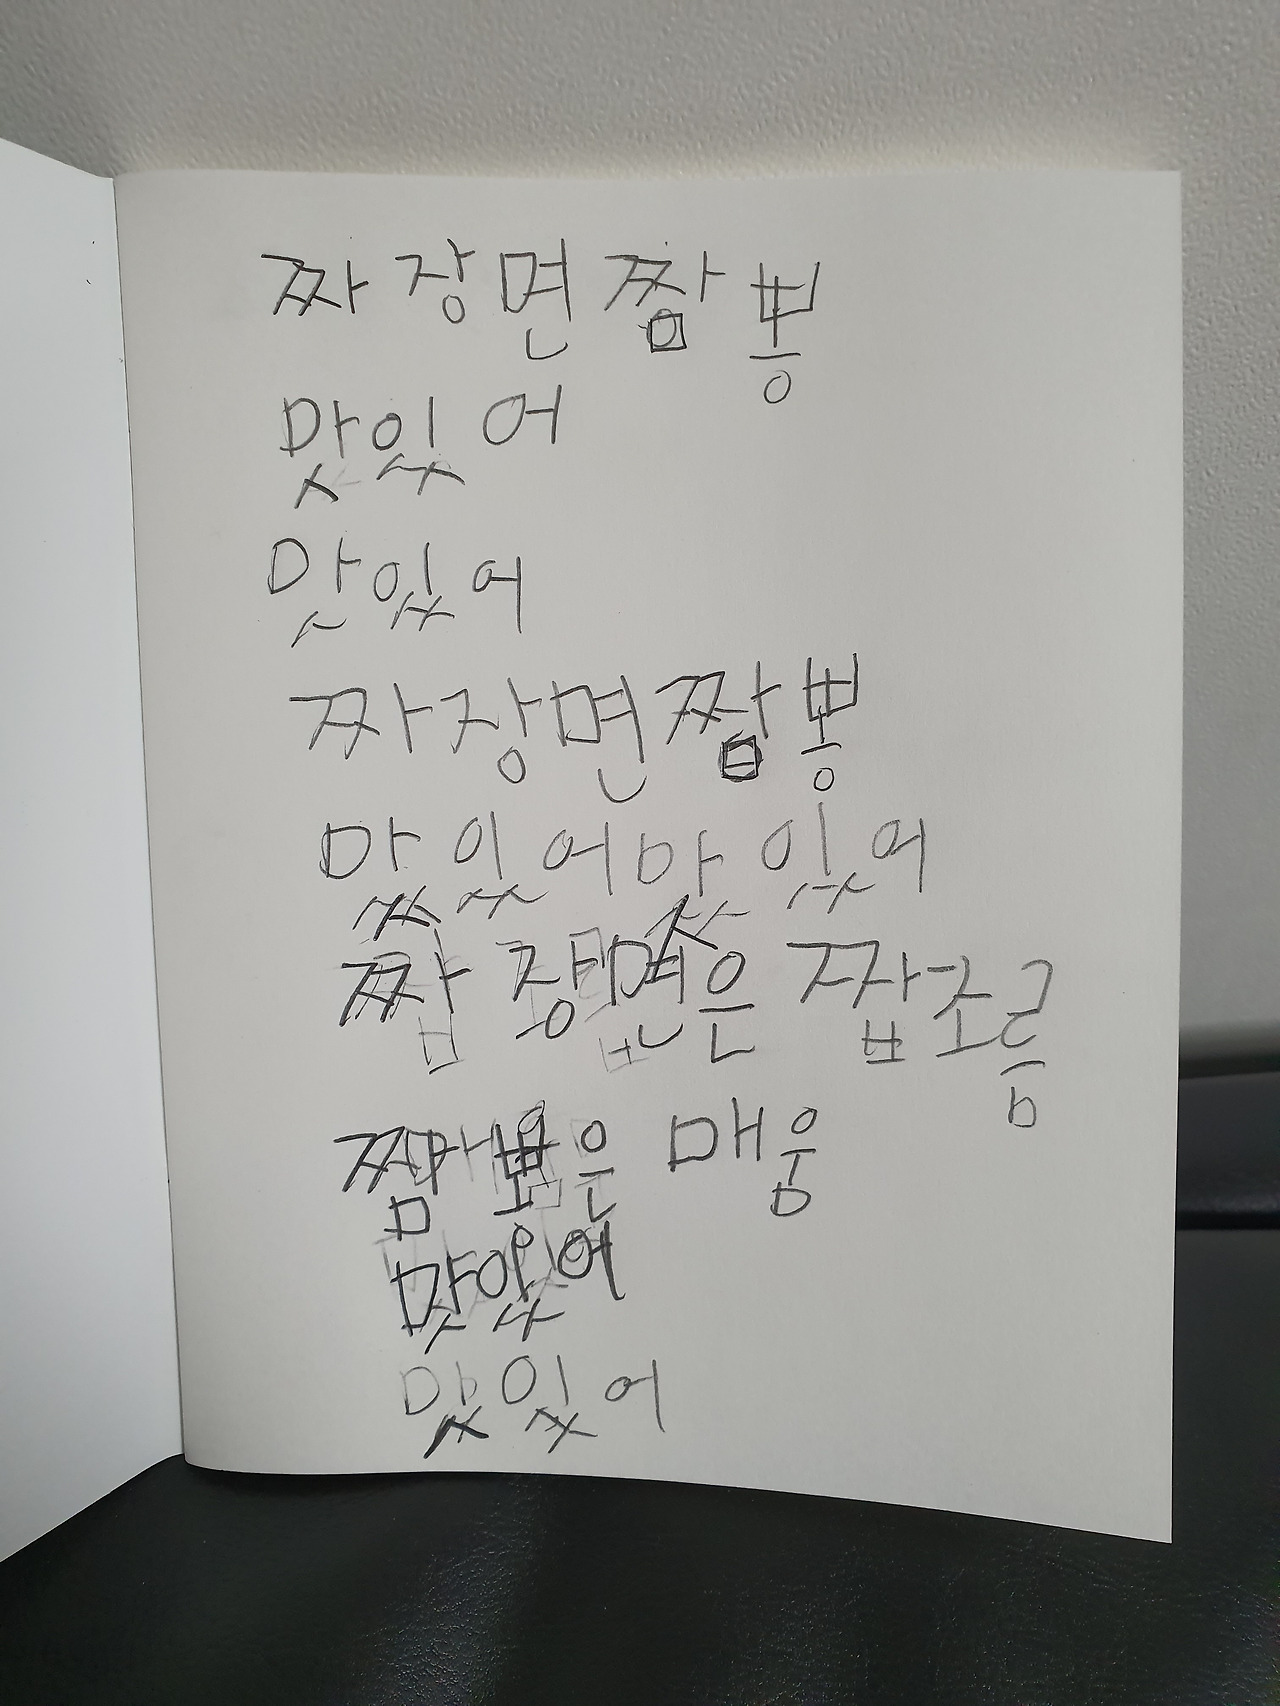 짜장면짬뽕
맛있어
맛있어
짜장면짬뽕
맛있어맛있어
짜장면은 짭조름
짬뽕은 매움
맛있어
맛있어